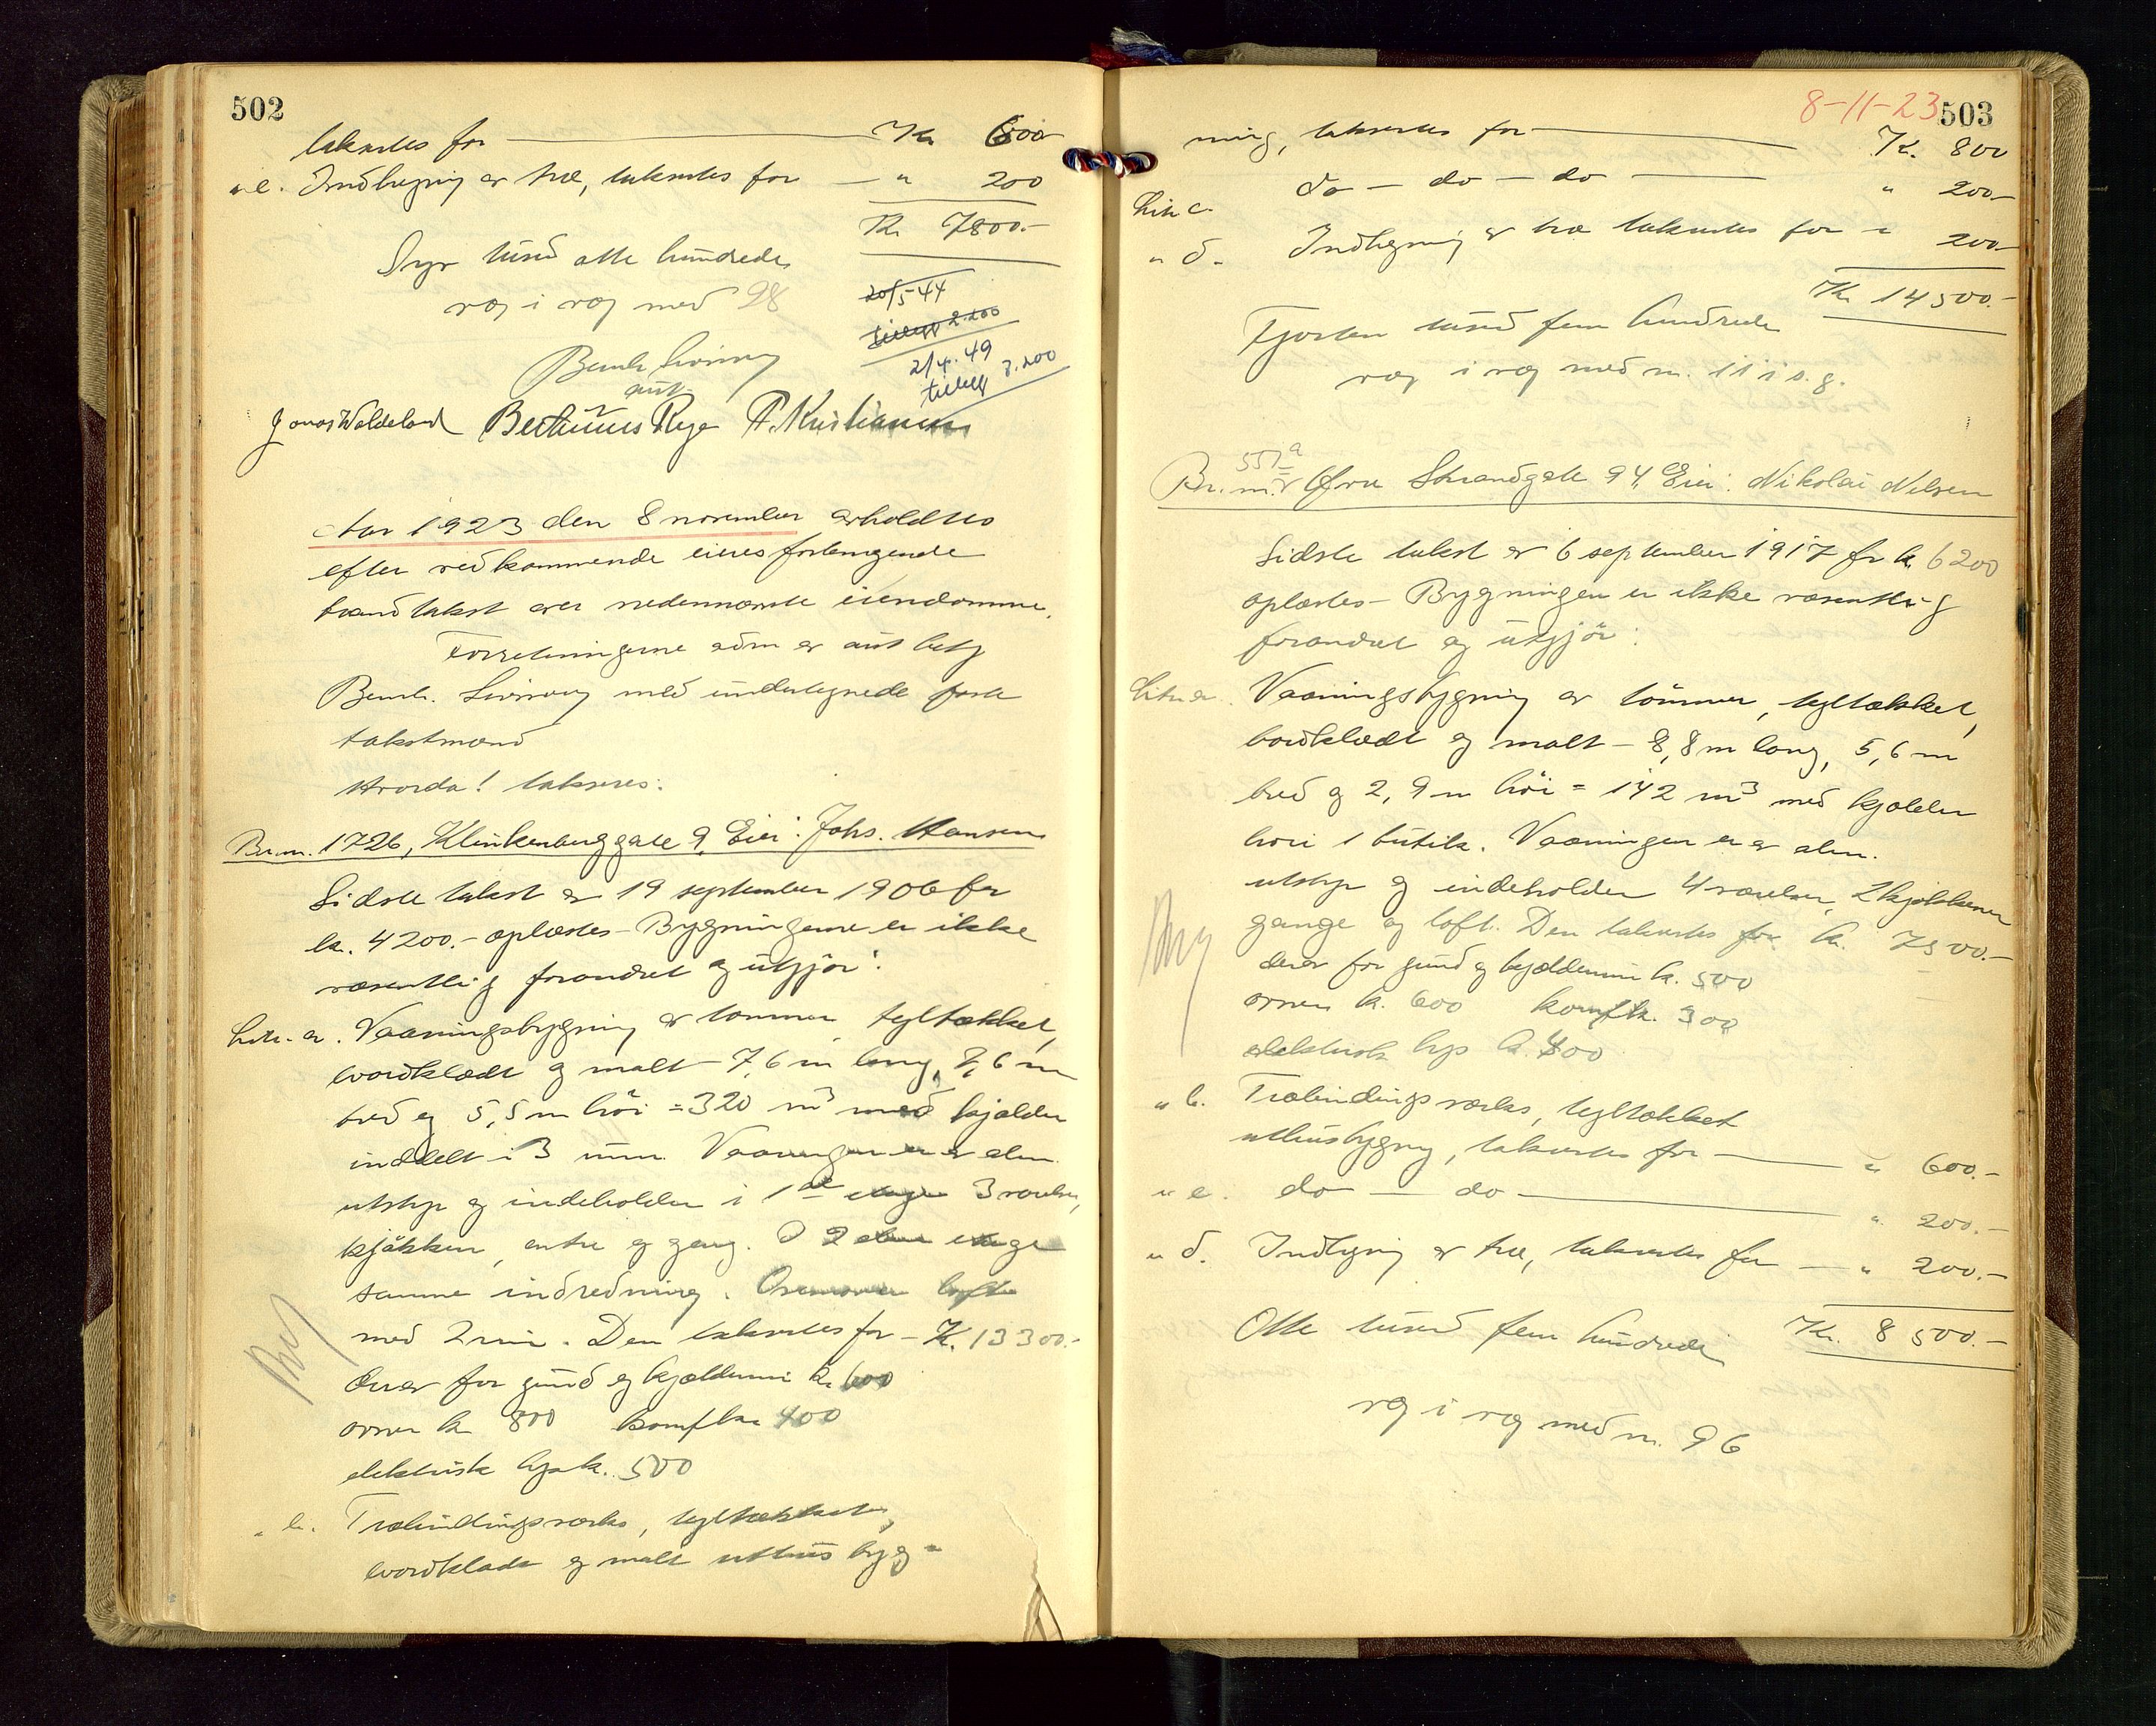 502
takseres for — Kr 600
" c. Indhegning av træ, takseres for — " 200
Kr 7800.-
Syv tusend otte hundrede
væg i væg med 98
20/5-44
tillegg 2.200
2/4. 49
tillegg 3.200
Jonas Waldeland Bertinius Rege P. Kristiansen
Aar 1923 den 8 november avholdtes
efter vedkommende eieres forlangende
brandtakst over nedennævnte eiendomme.
Forretningerne adm av aut
Bernh. med undertegnede faste
takstmænd
Hvorda! takseres:
Br.nr. 1726, Klinkenberggate 9, Eier: Johs. Hansen
Sidste takst av 19 september 1906 for
kr. 4200.- oplæstes - Bygningerne er ikke
væsentlig forandret og utgjör:
Litr. a. Vaaningsbygning av tömmer tegltækket,
bordklædt og malt - 7,6 m lang, 7,6 m
bred og 5,5 m höi = 320 m3 med kjælder
inddelt i 3 rum. Vaaningen er av alm.
utstyr og indeholder i 1ste etage 3 værelser,
kjökken, entre og gang. I 2 den etage
samme indredning. Ovenover loft
med 2 rum. Den takseres for - Kr. 13300.-
derav for grund og kjældermur kr. 600
ovner kr 800 komf kr 400
elektrisk lys kr. 500
" b. Træbindingsverks, tegltækket,
bordklædt og malt uthusbyg-
8-11-23 503
ning, takseres for — Kr. 800
Litr c. do - do - do — " 200.-
" d. Indhegning av træ takseres for " 200.-
Kr 14500.-
Fjorten tusend fem hundrede
væg i væg med nr. 11 i s. g.
551a
Br. nr. Övre Strandgate 94, Eier: Nikolai Nilsen
Sidste takst av 6 september 1917 for kr. 6200
oplæstes - Bygningen er ikke væsentlig
forandret og utgjör:
Litr a. Vaaningsbygning av tömmer, tegltækket,
bordklædt og malt - 8,8 m lang, 5,6 m
bred og 2,9 m höi = 142 m3 med kjælder
hvori 1 butik. Vaaningen er av alm.
utstyr og indeholder 4 værelser, 2 kjökkener
gange og loft. Den takseres for kr. 7500.-
derav for grund og kjældermur kr. 500
ovner kr. 600 komf kr. 300
elektrisk lys kr. 400
" b. Træbindingsverks, tegltækket
uthusbygning, takseres for — " 600.-
" c. do — do — " 200.-
" d. Indhegning av træ, takseres for — " 200.-
Otte tusend fem hundrede Kr. 8500.-
væg i væg med nr. 96